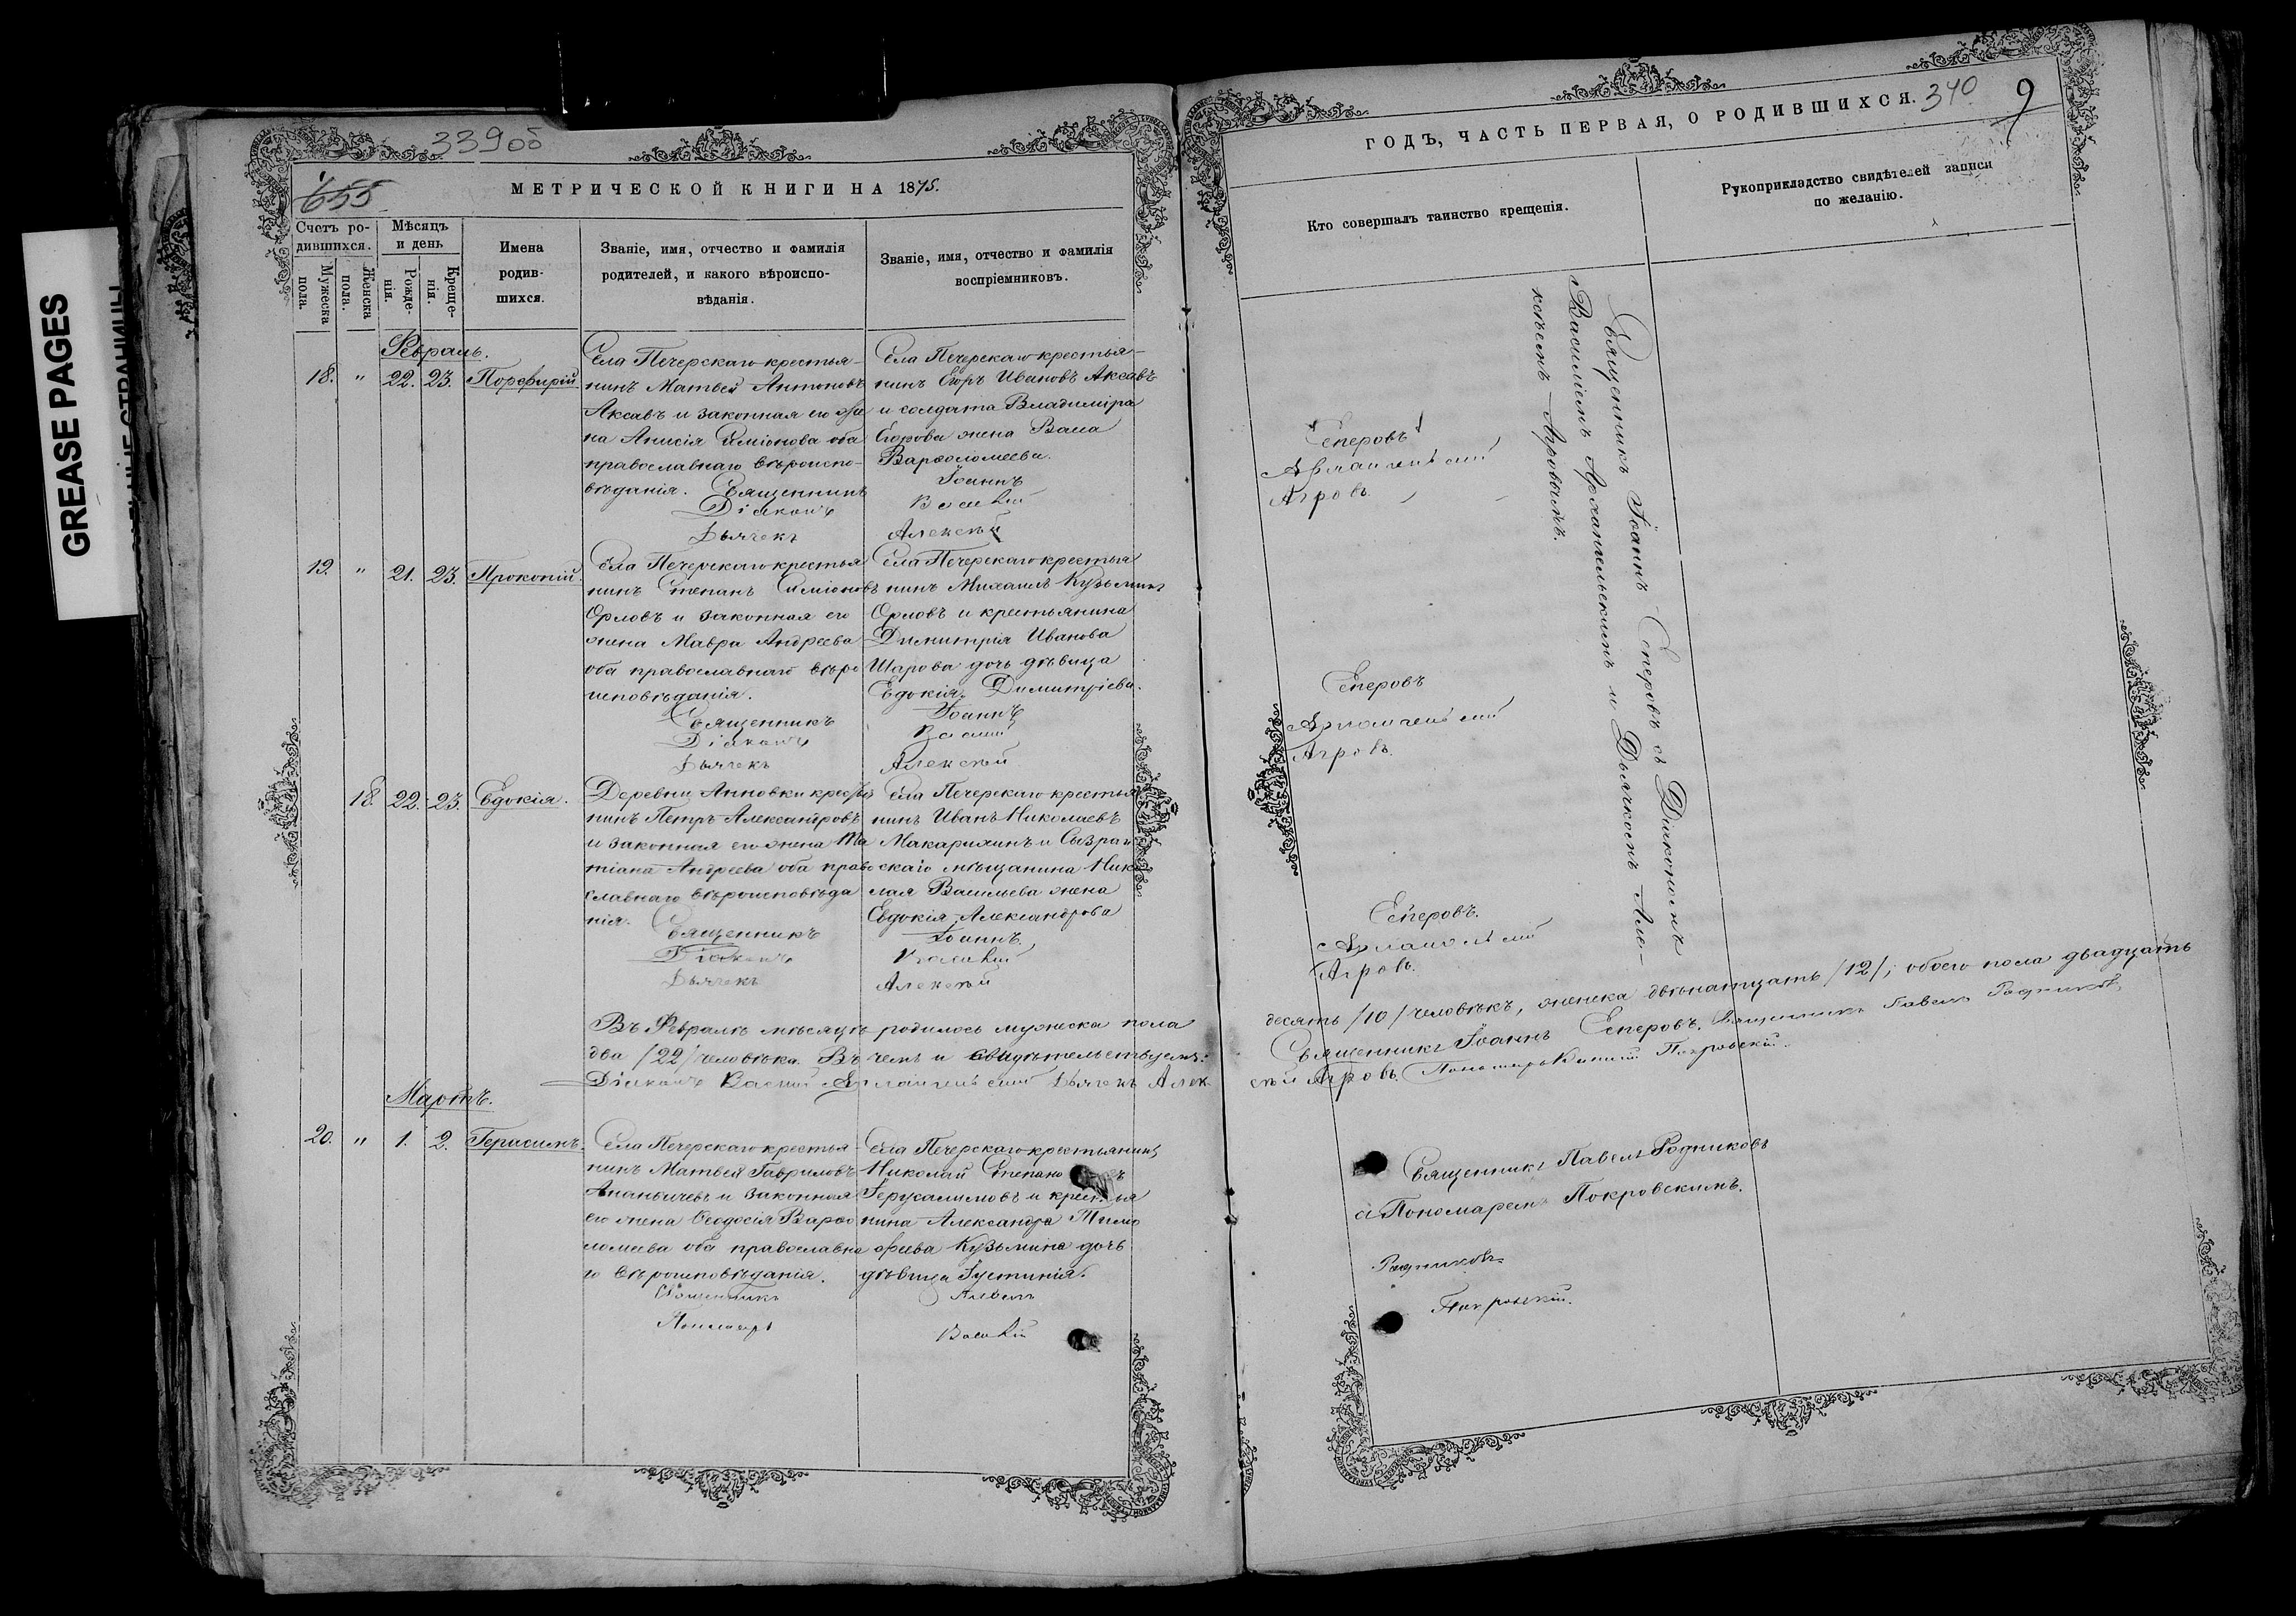 GREASE PAGES
339 об
655
МЕТРИЧЕСКОЙ КНИГИ НА 1875.
Счетъ ро-
дившихся.
Мужеска
пола.
Женска
пола.
Мѣсяцъ
и день
Рожде-
нія.
Креще-
нія.
Имена
родив-
шихся.
Званіе, имя, отчество и фамилія
родителей, и какого вѣроиспо-
вѣданія.
Званіе, имя, отчество и фамилія
воспріемниковъ.
Февраль.
18. " 22. 23. Порфирій
Села Печерскаго крестья-
нинъ Матвей Антоновъ
Аксавъ и законная его же
на Анисія Симіонова оба
православнаго вѣроиспо-
вѣданія. Священникъ
Діаконъ
Дьячекъ
Села Печерскаго крестья-
нинъ Егоръ Ивановъ Аксавъ
и солдата Владиміра
Егорова жена Васса
Варѳоломеева.
Іоаннъ
Василій
Алексѣй
19. " 21. 23. Прокопій.
Села Печерскаго крестья
нинъ Степанъ Симіоновъ
Орловъ и законная его
жена Мавра Андреева
оба православнаго вѣро
исповѣданія.
Священникъ
Діаконъ
Дьячекъ
Села Печерскаго крестья
нинъ Михаилъ Кузьминъ
Орловъ и крестьянина
Димитрія Иванова
Шарова дочь дѣвица
Евдокія Димитріева.
Іоаннъ
Василій
Алексѣй
18. 22. 23. Евдокія.
Деревни Анновки крестья
нинъ Петръ Александровъ
и законная его жена Та
тіана Андреева оба право
славнаго вѣроисповѣда
нія. Священникъ
Діаконъ
Дьячекъ
Села Печерскаго крестья
нинъ Иванъ Николаевъ
Макарихинъ и Сызран
скаго мѣщанина Нико
лая Васильева жена
Евдокія Александрова
Іоаннъ
Василій
Алексѣй
Въ Февралѣ мѣсяцѣ родилось мужеска пола
два /22/ человѣка. Въ чемъ и свидѣтельствуемъ:
Діаконъ Василій Архангельскій Дьячекъ Алек
Мартъ.
20. " 1. 2. Герасимъ.
Села Печерскаго крестья-
нинъ Матвей Гавриловъ
Ананьичевъ и законная
его жена Ѳеодосія Варѳо
ломеева оба православна
го вѣроисповѣданія.
Священникъ
Пономарь
Села Печерскаго крестьянинъ
Николай Степановъ
Іерусалимовъ и крестья
нина Александра Тимо
феева Кузьмина дочь
дѣвица Іустинія.
Павелъ
Василій
ГОДЪ, ЧАСТЬ ПЕРВАЯ, О РОДИВШИХСЯ.
340
9
Кто совершалъ таинство крещенія.
Рукоприкладство свидѣтелей записи
по желанію.
Священникъ Іоаннъ Есперовъ съ Діакономъ
Василіемъ Архангельскимъ и Дьячкомъ Але-
ксѣемъ Агровымъ.
Есперовъ
Архангельскій
Агровъ.
Есперовъ
Архангельскій
Агровъ.
Есперовъ.
Архангельскій
Агровъ.
десять /10/ человѣкъ, женска двѣнатцать /12/, обоего пола двадцать
Священникъ Іоаннъ Есперовъ. Священникъ Павелъ Родниковъ,
сѣй Агровъ. Пономарь Василій Покровскій.
Священникъ Павелъ Родниковъ
съ Пономаремъ Покровскимъ.
Родниковъ
Покровскій.